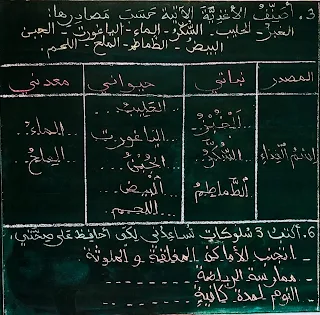 3. أصنّف الأغذية الآتية حسب مصادرها:
الخبز - الحليب - السّكّر - الماء - الياغورت - الجبن
البيض - الطماطم - الملح - اللحم.
المصدر | نباتي | حيواني | معدني
اسم الغذاء | الخبز | الحليب | الماء
السّكّر | الياغورت | الملح
الطّماطم | الجبن
البيض
اللحم
6. أكتب 3 سلوكات تساعدني لكي أحافظ على صحّتي:
- اتجنب الأماكن المغلقة و الملوثة
- ممارسة الرياضة
- النوم لمدة كافية